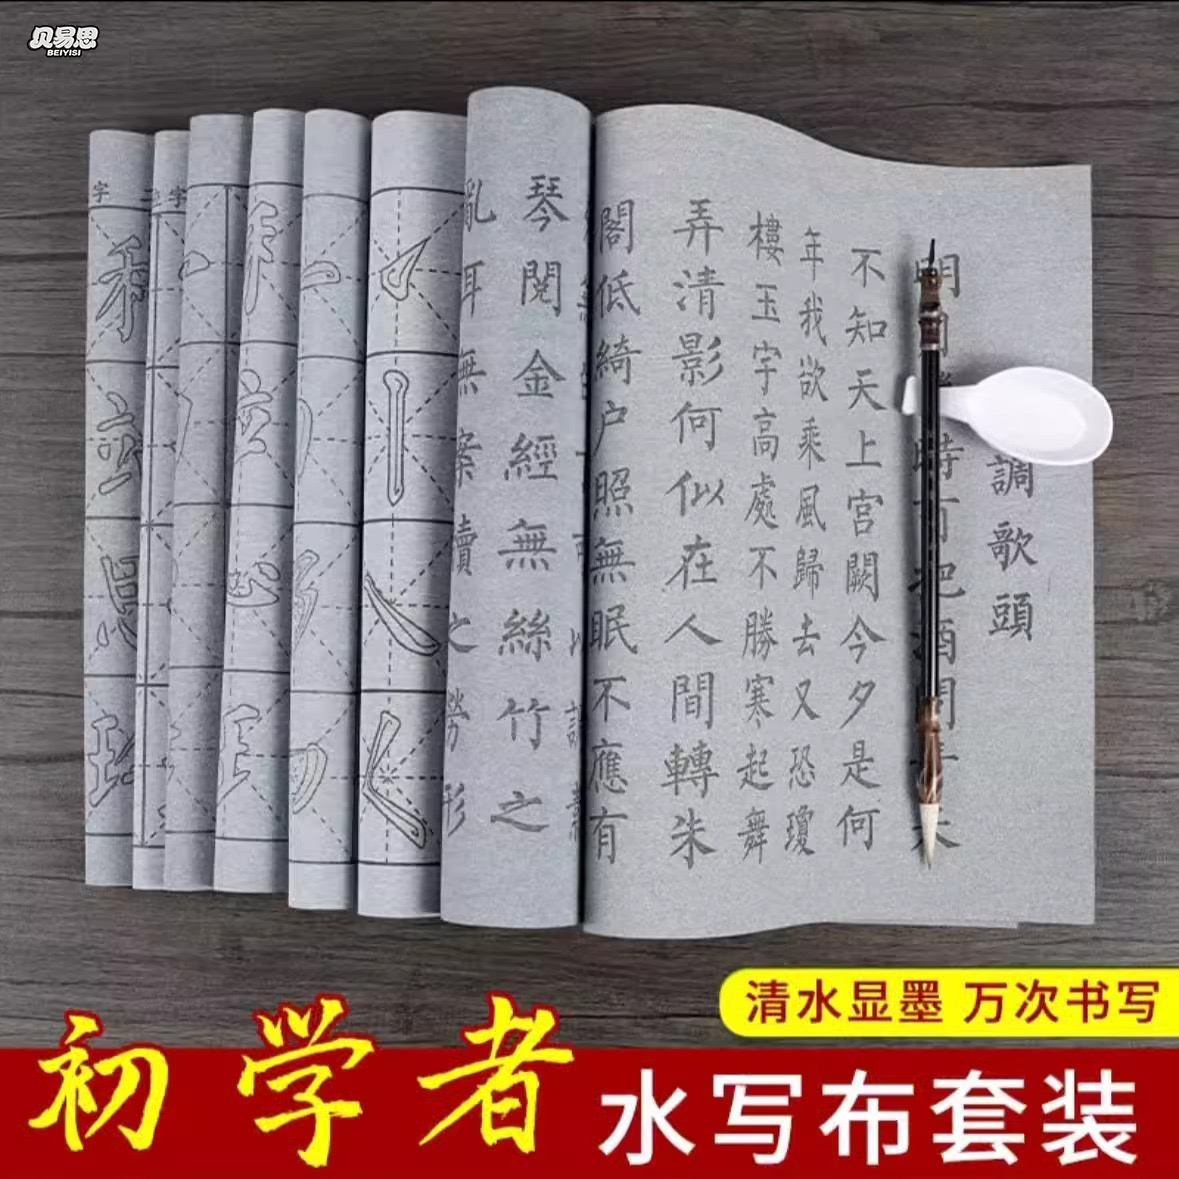 贝易思
BEIYISI
調歌頭
時有把酒問
不知天上宮闕今夕是何
年我欲乘風歸去又恐瓊
樓玉宇高處不勝寒起舞
弄清影何似在人間轉朱
閣低綺户照無眠不應有
琴閱金經無絲竹之
亂耳無案牘之勞形
字
字
清水显墨 万次书写
初学者
水写布套装